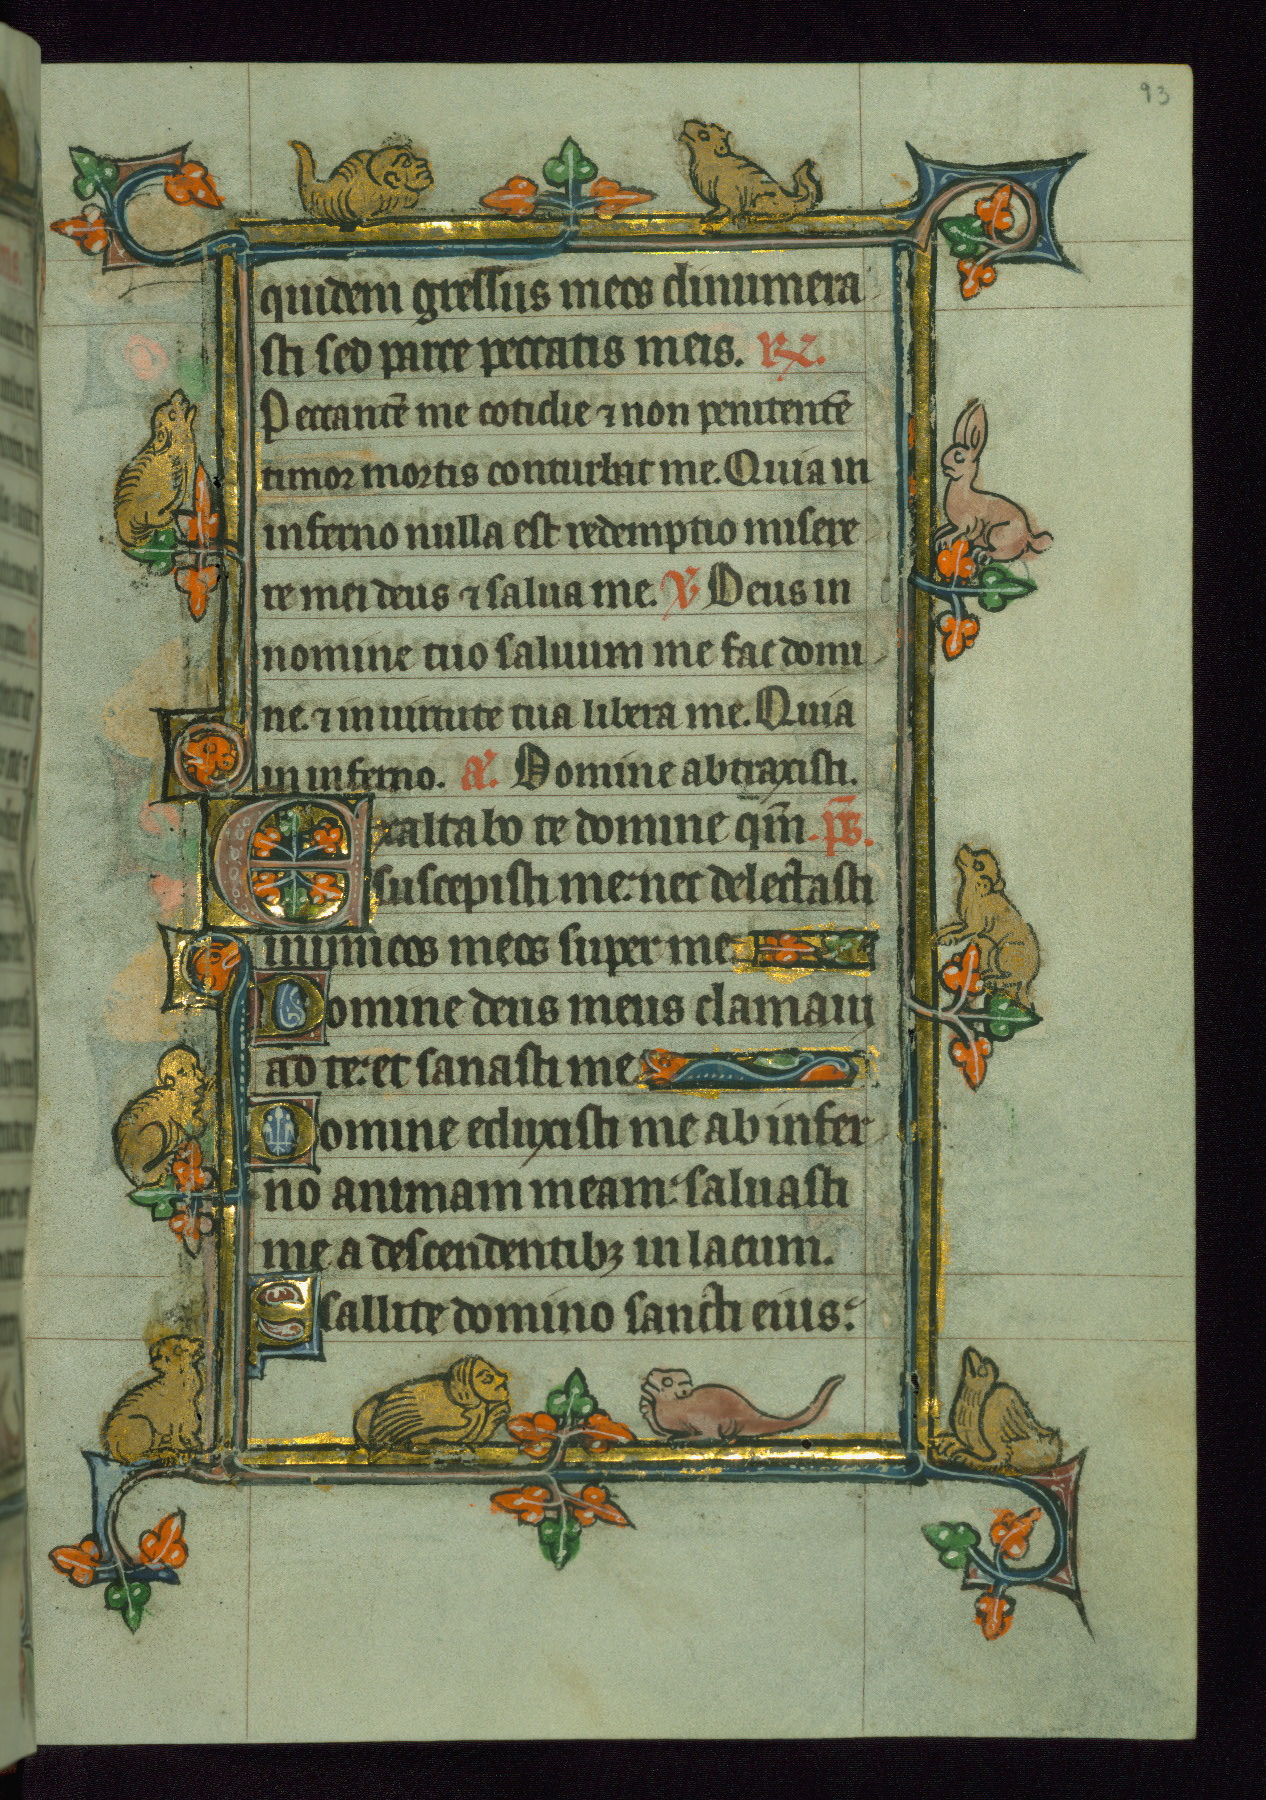 93
quidem gressus meos dinumera
sti sed parce peccatis meis. R.
Peccantē me cotidie ⁊ non penitentē
timor mortis conturbat me. Quia in
inferno nulla est redemptio misere
re mei deus ⁊ salua me. V Deus in
nomine tuo saluum me fac domi
ne. ⁊ in uirtute tua libera me. Quia
in inferno. a. Domine abtraxisti.
Exaltabo te domine qm̄ . ps̄.
suscepisti me: nec delectasti
inimicos meos super me
Domine deus meus clamaui
ad te: et sanasti me
Domine eduxisti me ab infer
no animam meam: saluasti
me a descendentibꝫ in lacum.
Psallite domino sancti eius: